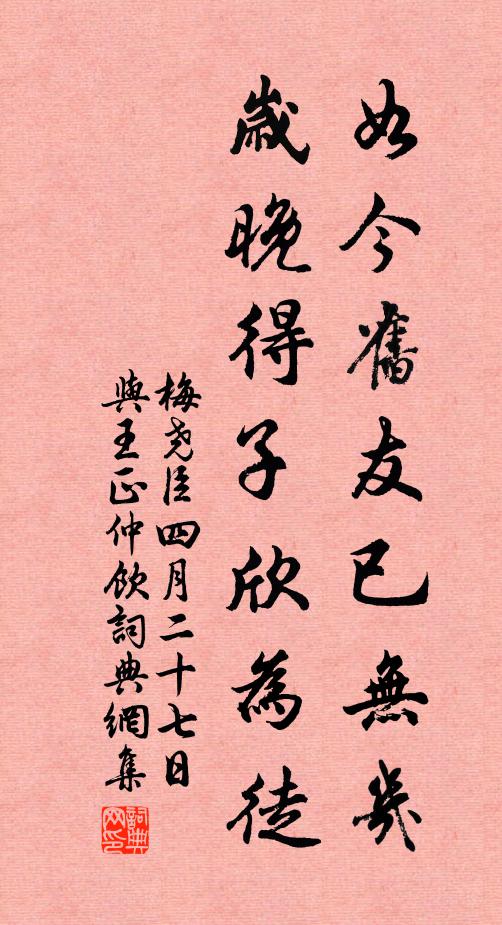 如今舊友已無幾
歲晚得子欣為徒
梅尧臣四月二十七日
與王正仲飲詞典網集
詞典网印